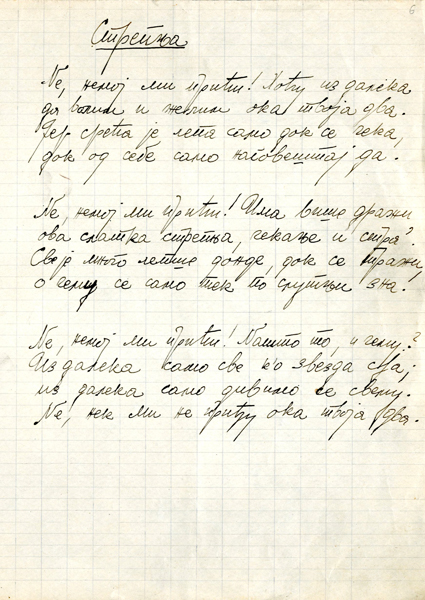 6
Стрепња
Не, немој ми прићи! Хоћу из далека
да волим и желим ока твоја два.
Јер срећа је лепа само док се чека,
док од себе само наговештај да.
Не, немој ми прићи! Има више дражи
ова слатка стрепња, чекање и стра?.
Све је много лепше донде, док се тражи,
о чему се само тек по слутњи зна.
Не, немој ми прићи! Нашто то, и чему?
Из далека само све к'о звезда сја;
из далека само дивимо се свему.
Не, нек ми не приђу ока твоја два.